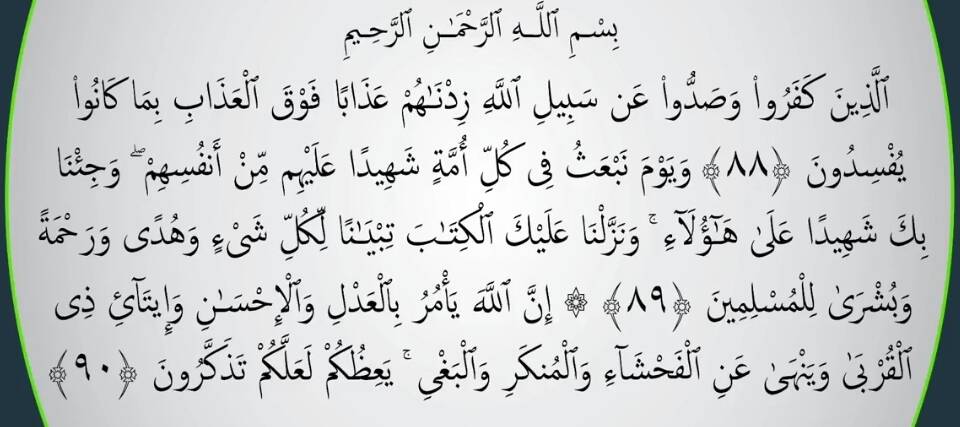 بِسْمِ ٱللَّهِ ٱلرَّحْمَـٰنِ ٱلرَّحِيمِ
ٱلَّذِينَ كَفَرُوا۟ وَصَدُّوا۟ عَن سَبِيلِ ٱللَّهِ زِدْنَـٰهُمْ عَذَابًا فَوْقَ ٱلْعَذَابِ بِمَا كَانُوا۟
يُفْسِدُونَ ﴿٨٨﴾ وَيَوْمَ نَبْعَثُ فِى كُلِّ أُمَّةٍ شَهِيدًا عَلَيْهِم مِّنْ أَنفُسِهِمْ ۖ وَجِئْنَا
بِكَ شَهِيدًا عَلَىٰ هَـٰٓؤُلَآءِ ۚ وَنَزَّلْنَا عَلَيْكَ ٱلْكِتَـٰبَ تِبْيَـٰنًا لِّكُلِّ شَىْءٍ وَهُدًى وَرَحْمَةً
وَبُشْرَىٰ لِلْمُسْلِمِينَ ﴿٨٩﴾ ۞ إِنَّ ٱللَّهَ يَأْمُرُ بِٱلْعَدْلِ وَٱلْإِحْسَـٰنِ وَإِيتَآئِ ذِى
ٱلْقُرْبَىٰ وَيَنْهَىٰ عَنِ ٱلْفَحْشَآءِ وَٱلْمُنكَرِ وَٱلْبَغْىِ ۚ يَعِظُكُمْ لَعَلَّكُمْ تَذَكَّرُونَ ﴿٩٠﴾